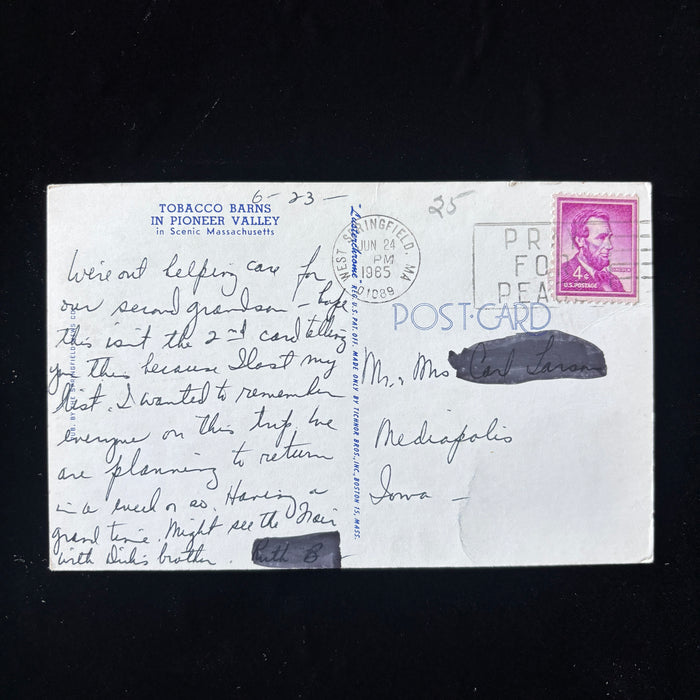 6-23-
TOBACCO BARNS
IN PIONEER VALLEY
in Scenic Massachusetts
We're out helping care for
our second grandson - hope
this isn't the 2nd card telling
you this because I lost my
list. I wanted to remember
everyone on this trip. We
are planning to return
in a week or so. Having a
grand time. Might see the Fair
with Dick's brother.
"Lusterchrome" REG. U.S. PAT. OFF. MADE ONLY BY TICHNOR BROS., INC., BOSTON 15, MASS.
25
WEST SPRINGFIELD, MA
JUN 24
PM
1965
01089
PR
FO
PEA
4¢
U.S. POSTAGE
POST CARD
Mr. & Mrs
Mediapolis
Iowa -